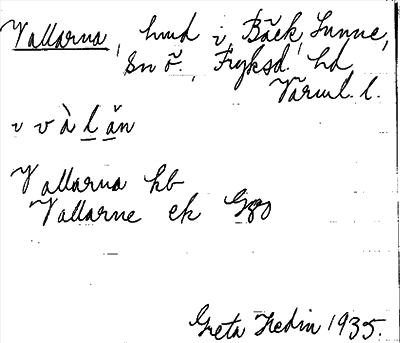 Vallarna, hmd i Bäck, Sunne,
Sn ö., Fryksd. hd
Värml. l.
i v à l ă n
Vallarna hb
Vallarne ek G
Greta Hedin 1935.